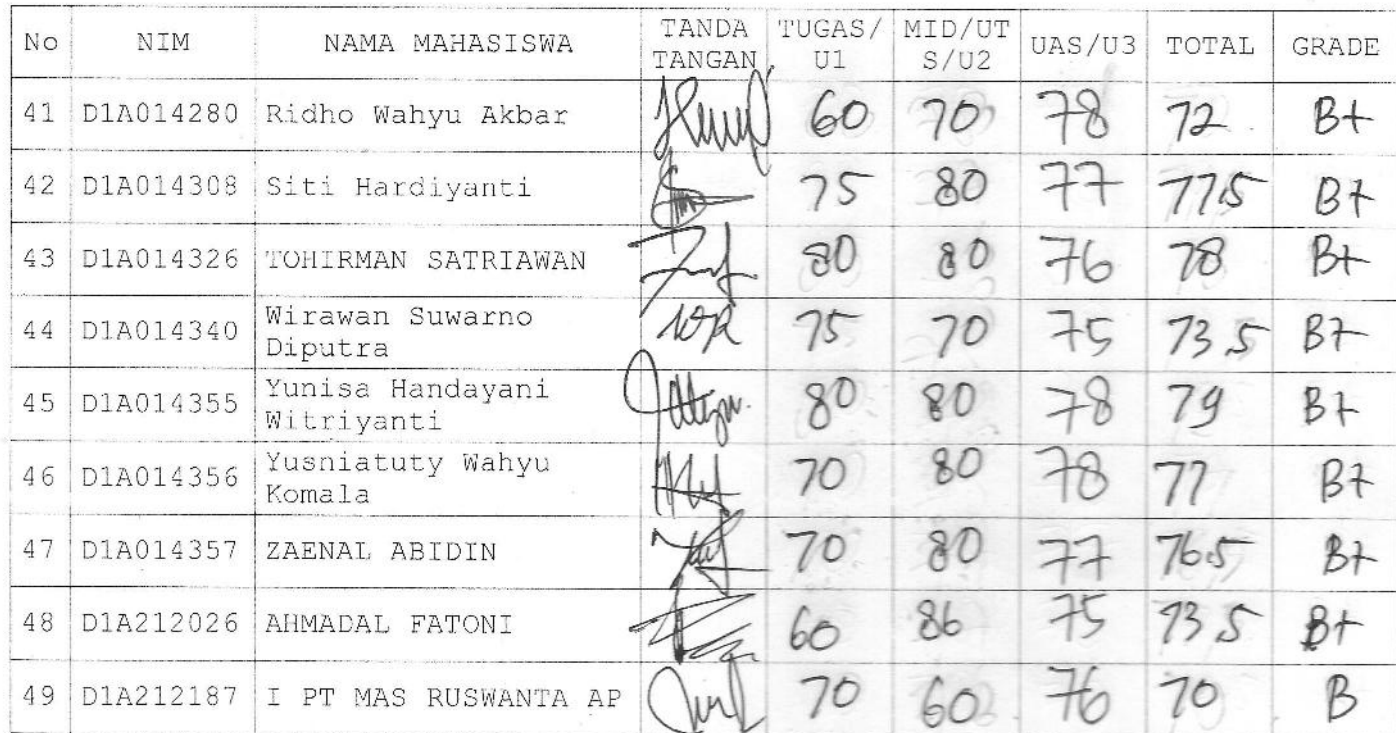 No NIM NAMA MAHASISWA TANDA TANGAN TUGAS/U1 MID/UTS/U2 UAS/U3 TOTAL GRADE
41 D1A014280 Ridho Wahyu Akbar 60 70 78 72 B+
42 D1A014308 Siti Hardiyanti 75 80 77 77,5 B+
43 D1A014326 TOHIRMAN SATRIAWAN 80 80 76 78 B+
44 D1A014340 Wirawan Suwarno Diputra 75 70 75 73,5 B+
45 D1A014355 Yunisa Handayani Witriyanti 80 80 78 79 B+
46 D1A014356 Yusniatuty Wahyu Komala 70 80 78 77 B+
47 D1A014357 ZAENAL ABIDIN 70 80 77 76.5 B+
48 D1A212026 AHMADAL FATONI 60 75 73,5 B+
49 D1A212187 I PT MAS RUSWANTA AP 70 60 76 70 B